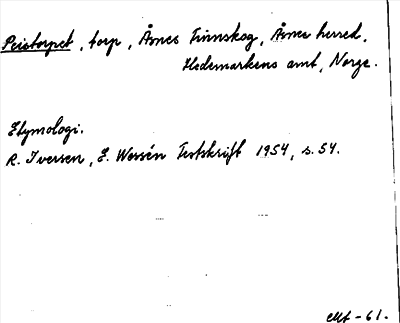 Peistorpet, torp, Åsnes Finnskog, Åsnes herred,
Hedemarkens amt, Norge.
Etymologi.
R. Iversen, E. Wessén Festskrift 1954, s. 54.
-61.